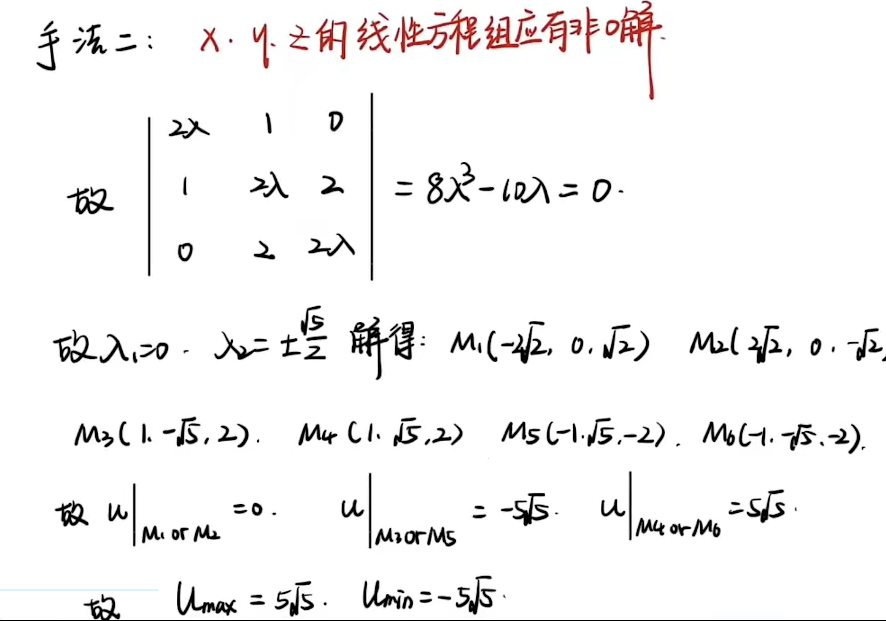 手法二: x.y.z的线性方程组应有非0解.
2λ 1 0
故 1 2λ 2 = 8λ³-10λ = 0.
0 2 2λ
故 λ₁=0. λ₂=±√5/2 解得: M₁(-2√2, 0, √2) M₂(2√2, 0. -√2,
M₃(1. -√5, 2). M₄(1. √5, 2) M₅(-1.√5,-2). M₆(-1.-√5.-2).
故 u|M₁ or M₂ =0. u|M₃ or M₅ = -5√5. u|M₄ or M₆ = 5√5.
故 Umax = 5√5. Umin = -5√5.